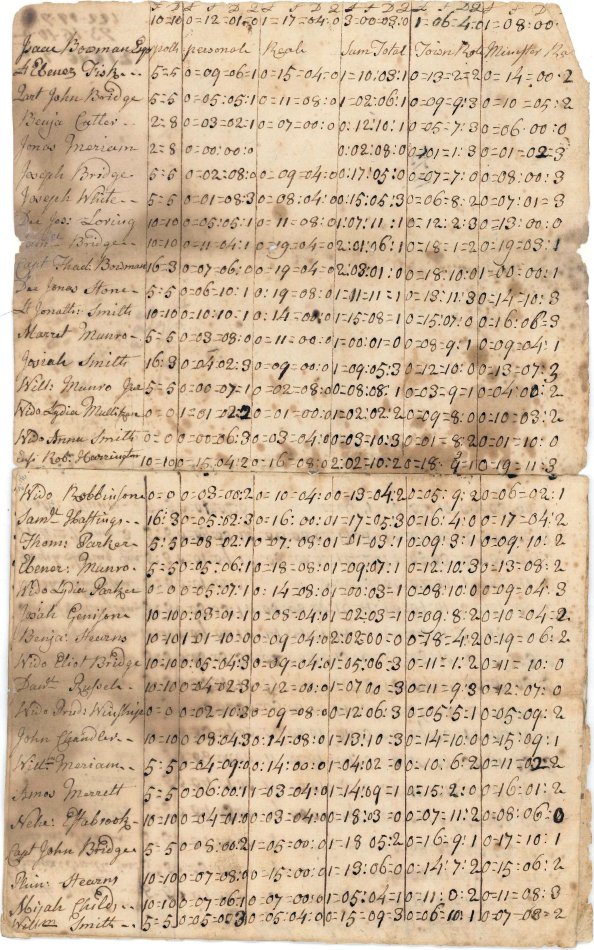 10=10 0=12=01=0 1=17=04=0 3=00=08=0 1=06=4=0 1=08=00
Isaac Bowman Esqr polls personale Reale Sum Total Town Rate Minister Ra
Lt Ebener Fisk 5=5 0=09=06=1 0=15=04=0 1=10=03=1 0=13=2=2 0=14=00=2
John Bridge 5=5 0=05:05:1 0=11=08:0 1=02:06:1 0=09=9:3 0=10=05:2
Benja Cutler 2=8 0=03=02:1 0=07=00:0 0:12:10:1 0=05=7:3 0=06:00:0
Jonas Meriam 2=8 0=00:00:0 0:02:08:0 01=1:3 0=01=02=3
Joseph Bridge 5=5 0=02:08:0 0=09=04:0 0:17:05:0 0=07=7:0 0=08:00:3
Joseph White 5=5 0=01=08:3 0=08:04:0 0:15:05:3 0=06:8:2 0=07:01=3
Dea Jos: Loring 10=10 0=05:05:1 0=11=08:0 1:07:11:1 0=12:2:3 0=13:00:0
Bridge 10=10 0=11=04:1 0=19=04=0 2:01:06:1 0=18=1=2 0=19=03:1
Capt Thad: Bowman 16=3 0=07=06:0 0=19=04=0 2:03:01:0 0=18:10:0 1=00=00:1
Dea Jonas Stone 5=5 0=06=10:1 0:19=08:0 1=11=11=1 0=13:11:3 0=14=10:3
Lt Jonath: Smith 10=10 0=10:10:1 0:14=00:0 1=15=08=1 0=15:07:0 0=16:06=3
Marret Munro 5=5 0=03=08:0 0=11=00:0 1=00:01=0 0=08=9:1 0=09=04:1
Josiah Smith 16:3 0=04:02:3 0=09=00:0 1=09:05:3 0=12=10:0 0=13=07:3
Will: Munro Jnr 5=5 0=00=07:1 0=02=08:0 0=08:08:1 0=03=9=1 0=04:00:2
Wido Lydia Mulliken 0=0 1=01=02:2 0=01=00:0 1=02:02:2 0=09=8:0 0=10=03:2
Wido Anna Smith 0=0 0=00=06:3 0=03=04:0 0=03=10:3 0=01=8:2 0=01=10:0
Robt Harrington 10=10 0=15:04:2 0=16=08:0 2:02=10:2 0=18:9=1 0=19=11:3
Wido Robbinson 0=0 0=03=00:2 0=10=04:0 0=13=04:2 0=05:9:2 0=06=02:1
Samll Hastings 16:3 0=05:02:3 0=16:00:0 1=17=05:3 0=16:4:0 0=17=04:2
Thoms Parker 5=5 0=08=02:1 0=07:08:0 1=01=03:1 0=09:3:1 0=09:10:2
Ebener: Munro 5=5 0=05:06:1 0=18=08:0 1=09:07:1 0=12:10:3 0=13=08:2
Wido Lydia Parker 0=0 0=05:07:1 0:14=08:0 1=00=03=1 0=08:10:0 0=09=04:3
Josiah Genisone 10=10 0:03=01:1 0=08=04:0 1=02:03=1 0=09:8:2 0=10=04=2
Benja: Stearns 10=10 1=01=10=0 0=09=04:0 2:02:00=0 0=18=4:2 0=19=06:2
Wido Eliot Bridge 10=10 0:05=04:3 0=09=04:0 1=05:06:3 0=11=1:2 0=11=10:0
Davd Russel 10=10 0=04=02:3 0=12=00:0 1=07:00=3 0=11=9:3 0=12:07:0
Wido Prud: Winship 0=0 0=02=10:3 0=09=08=0 0=12:06:3 0=05:5:1 0=05=09:2
John Chandler 10=10 0=08:04:3 0=14=08:0 1=13=10:3 0=14=10:0 0=15=09:1
Willm Meriam 5=5 0=04=09:0 0:14:00:0 1=04:02=0 0=10:6:2 0=11=02:2
Amos Merrett 5=5 0=06:00:1 1=03=04:0 1=14:09=1 0=15:2:0 0=16:01:2
Nehe: Estabrook 10=10 0=04=01:0 0=03=04:0 0=18:03=0 0=07=11:2 0=08=06=0
Capt John Bridge 5=5 0=08:00:2 1=05:00:0 1=18:05:2 0=16=9:1 0=17=10:1
Phin: Stearns 10=10 0=07=08:0 0=15=00:0 1=13:06=0 0=14=7:2 0=15=06:2
Abijah Childs 10=10 0=07=06:1 0=07=00:0 1=05:04=1 0=11:0:2 0=11=08:3
Willm Smith 5=5 0=05=05:3 0=05=04:0 0=15=09:3 0=06:10:1 0=07=08=2